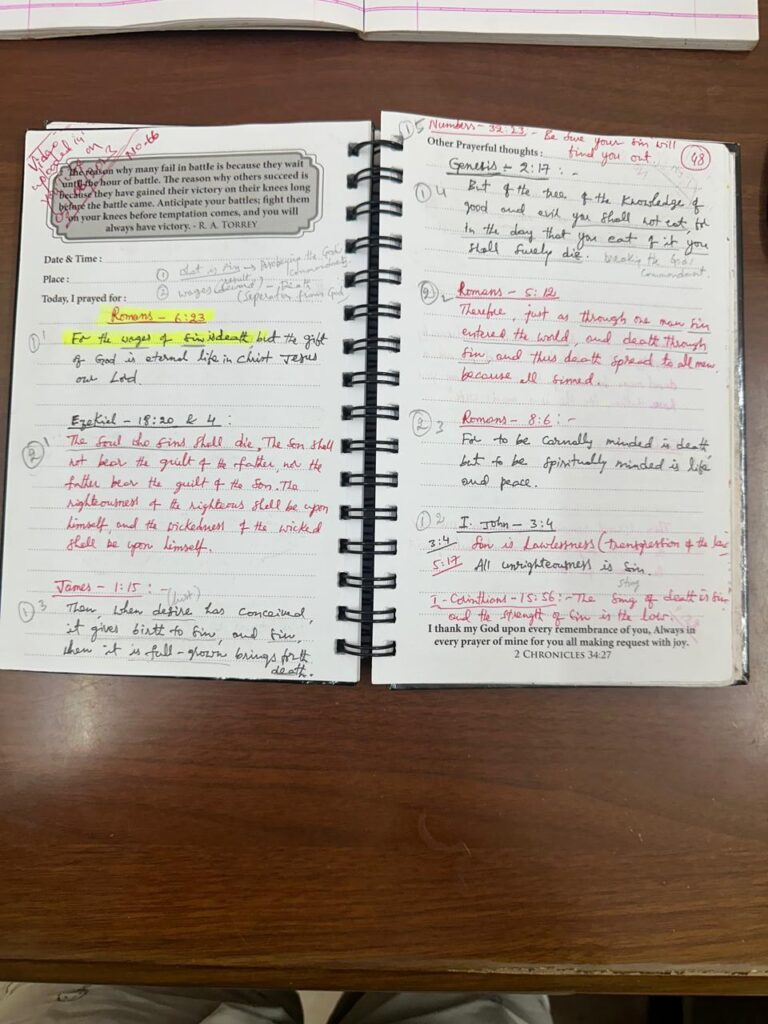 Video
uploaded in
No. 66
The reason why many fail in battle is because they wait
until the hour of battle. The reason why others succeed is
because they have gained their victory on their knees long
before the battle came. Anticipate your battles; fight them
on your knees before temptation comes, and you will
always have victory. - R. A. TORREY
Date & Time :
① What is Sin - Disobeying the God
Commandments
Place :
result
② wages (            ) - Death
Today, I prayed for :
(Seperation from God)
Romans - 6:23
① 1 For the wages of Sin is death, but the gift
of God is eternal life in Christ Jesus
our Lord.
Ezekiel - 18:20 & 4 :
② 1 The Soul who Sins shall die, The Son shall
not bear the guilt of the father, nor the
father bear the guilt of the Son. The
righteousness of the righteous shall be upon
himself, and the wickedness of the wicked
shall be upon himself.
James - 1:15 : - (lust)
① 3 Then, when desire has conceived,
it gives birth to Sin, and Sin,
when it is full-grown brings forth
death.
① 5 Numbers - 32:23 - Be sure your Sin will
find you out.
48
Other Prayerful thoughts :
Genesis - 2:17 : -
① 4 But of the tree of the Knowledge of
good and evil you shall not eat, for
in the day that you eat of it you
shall surely die. breaking the God
Commandment
② 2 Romans - 5:12
Therefore, just as through one man Sin
entered the world, and death through
Sin, and thus death spread to all men
because all sinned.
② 3 Romans - 8:6 : -
For to be Carnally minded is death
but to be Spiritually minded is life
and peace.
① 2 I. John - 3:4
3:4 Sin is Lawlessness (transgression of the law
5:17 All unrighteousness is Sin.
Sting
I - Corinthians - 15:56 : - The Song of death is Sin
and the strength of Sin is the law.
I thank my God upon every remembrance of you, Always in
every prayer of mine for you all making request with joy.
2 CHRONICLES 34:27